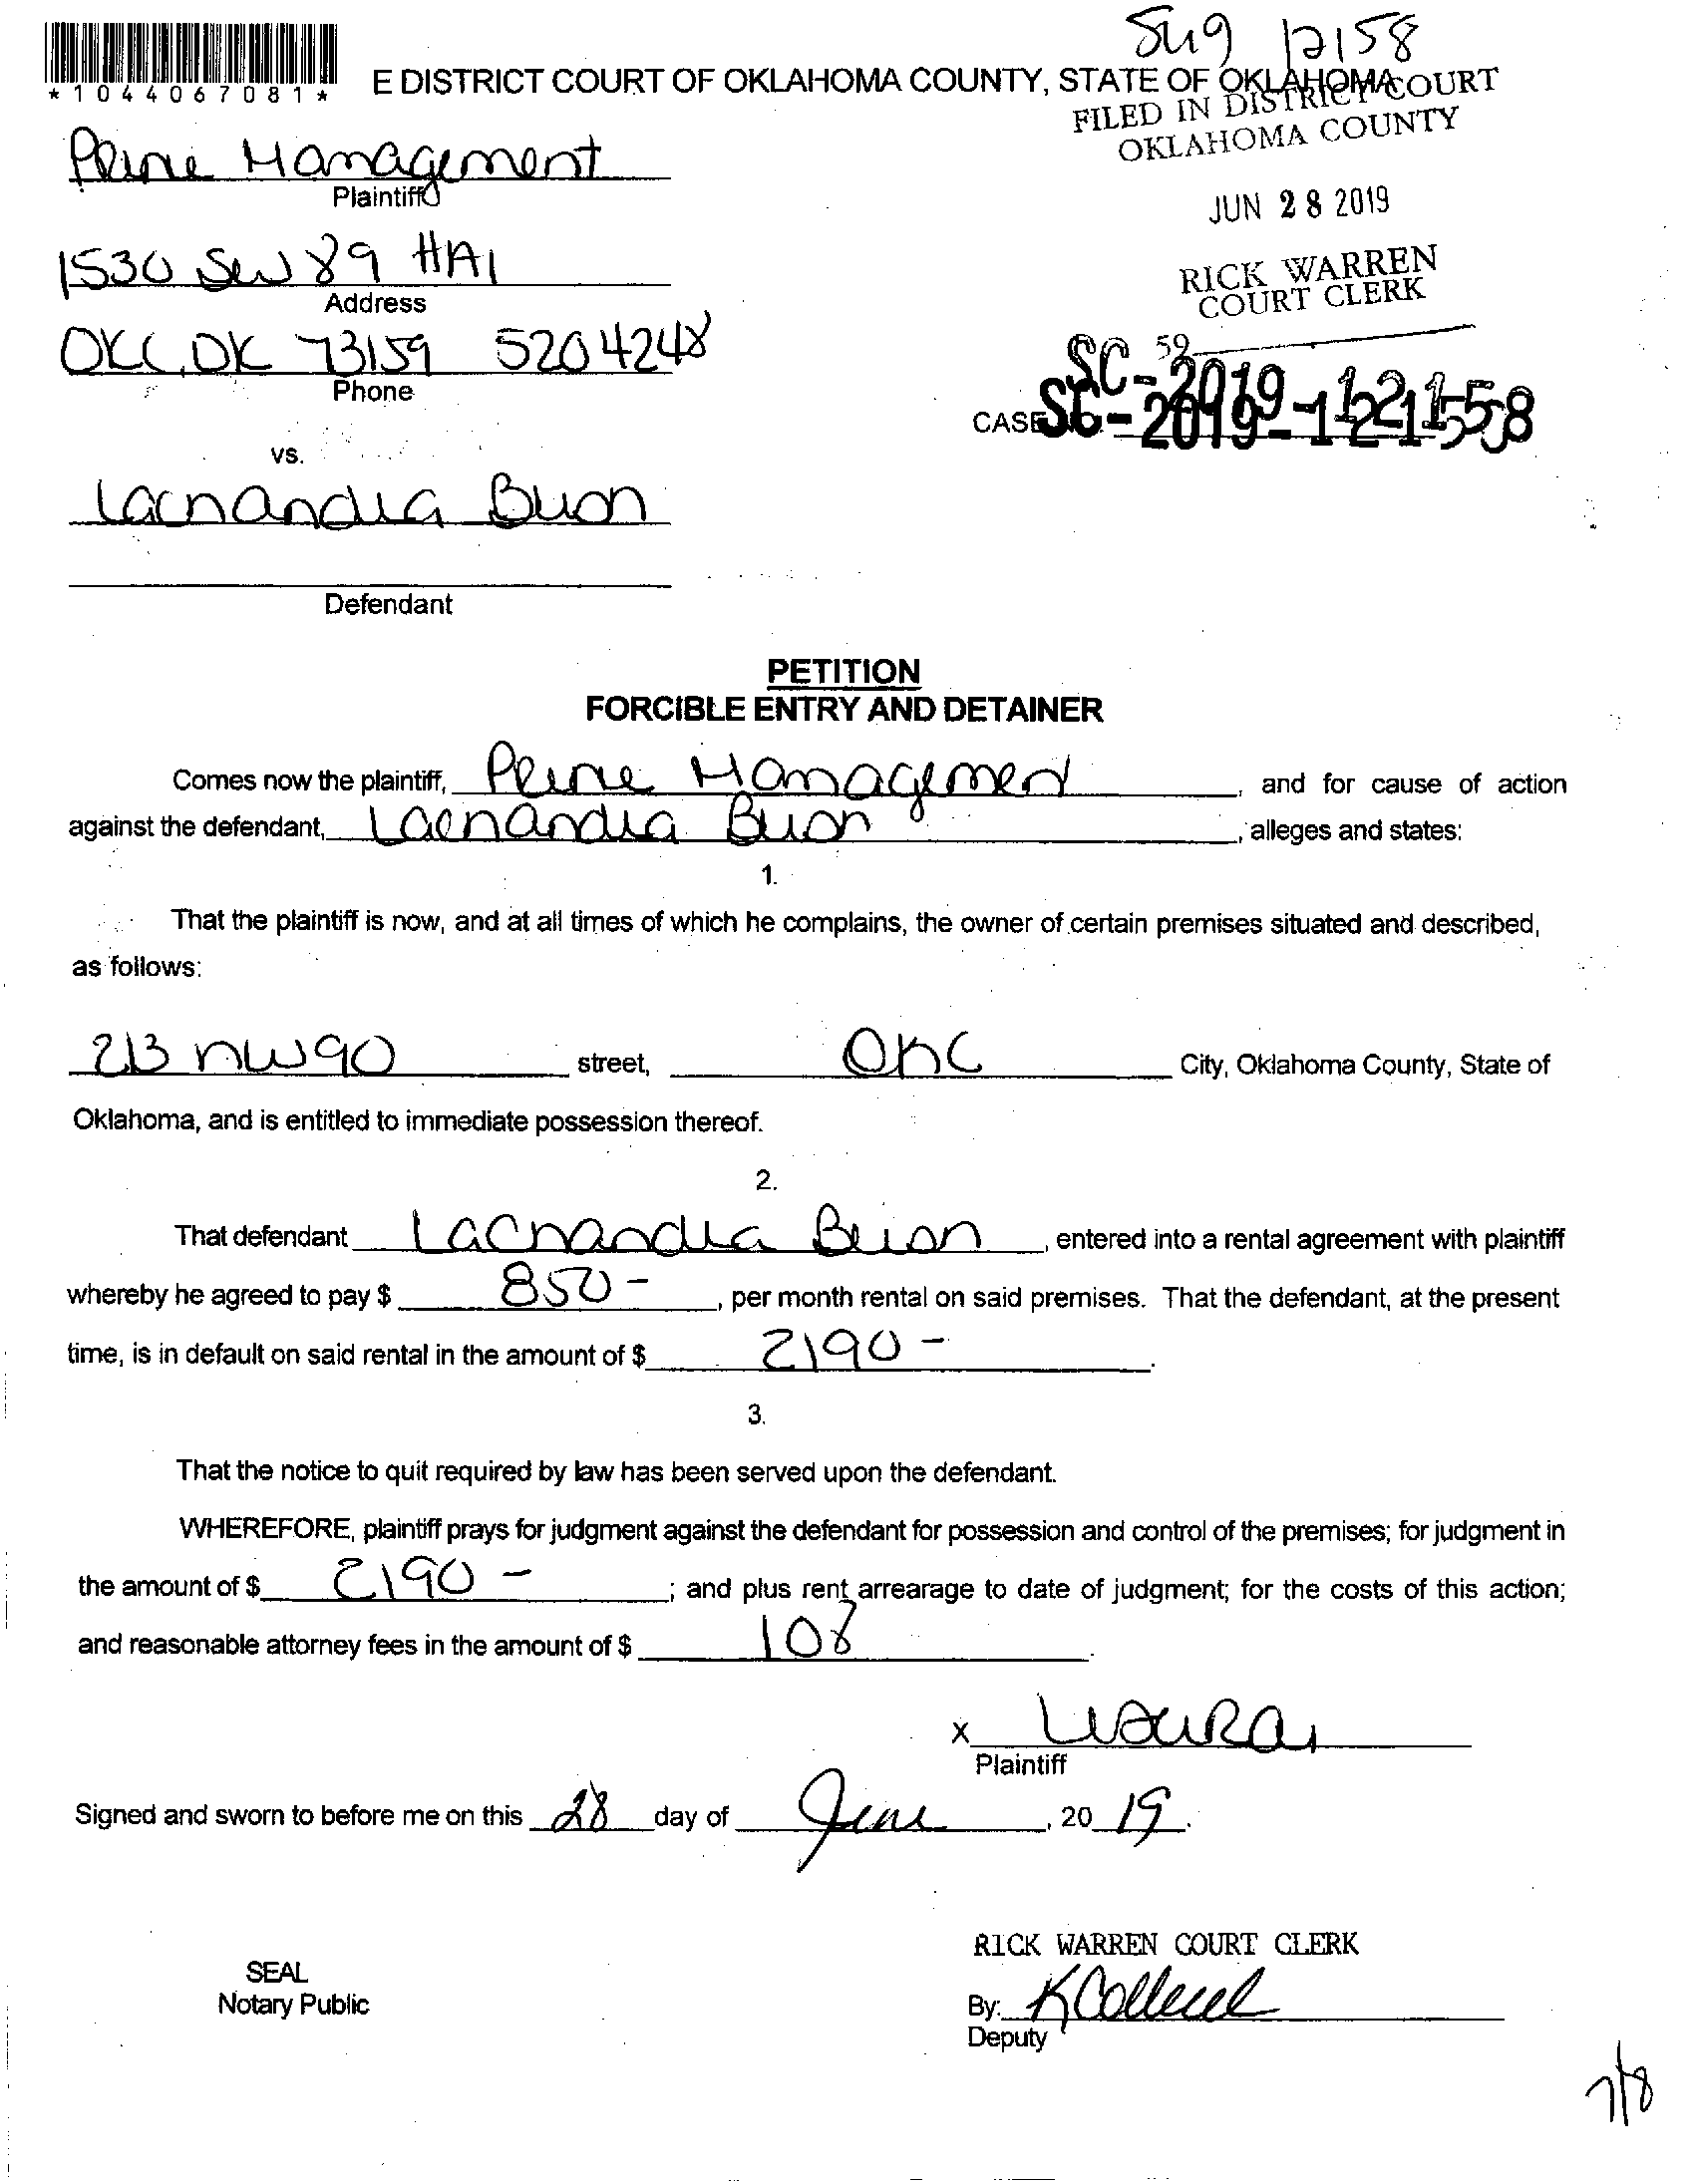 *1044067081*
E DISTRICT COURT OF OKLAHOMA COUNTY, STATE OF OKLAHOMA
12158
FILED IN DISTRICT COURT
OKLAHOMA COUNTY
JUN 28 2019
RICK WARREN
COURT CLERK
59
Management
Plaintiff
1530 SW 89 #A1
Address
OKC, OK 73159 5204248
Phone
CASE
SC-2019-12158
vs.
Defendant
PETITION
FORCIBLE ENTRY AND DETAINER
Comes now the plaintiff, Managemen, and for cause of action
against the defendant, , alleges and states:
1.
That the plaintiff is now, and at all times of which he complains, the owner of certain premises situated and described,
as follows:
213 NW 90 street, OKC City, Oklahoma County, State of
Oklahoma, and is entitled to immediate possession thereof.
2.
That defendant , entered into a rental agreement with plaintiff
whereby he agreed to pay $ 850-, per month rental on said premises. That the defendant, at the present
time, is in default on said rental in the amount of $ 2190-.
3.
That the notice to quit required by law has been served upon the defendant.
WHEREFORE, plaintiff prays for judgment against the defendant for possession and control of the premises; for judgment in
the amount of $ 2190-; and plus rent arrearage to date of judgment; for the costs of this action;
and reasonable attorney fees in the amount of $ 108.
X
Plaintiff
Signed and sworn to before me on this 28 day of June, 20 19.
RICK WARREN COURT CLERK
SEAL
Notary Public
By:
Deputy
7/8